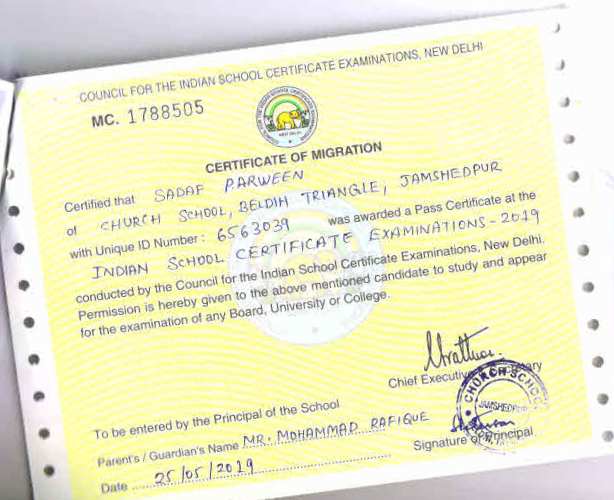 COUNCIL FOR THE INDIAN SCHOOL CERTIFICATE EXAMINATIONS, NEW DELHI
MC. 1788505
NEW DELHI
CERTIFICATE OF MIGRATION
Certified that SADAF PARWEEN
of CHURCH SCHOOL, BELDIH TRIANGLE, JAMSHEDPUR
with Unique ID Number : 6563039 was awarded a Pass Certificate at the
INDIAN SCHOOL CERTIFICATE EXAMINATIONS - 2019
conducted by the Council for the Indian School Certificate Examinations, New Delhi.
Permission is hereby given to the above mentioned candidate to study and appear
for the examination of any Board, University or College.
Chief Executive
CHURCH SCHOOL
JAMSHEDPUR
To be entered by the Principal of the School
Parent's / Guardian's Name MR. MOHAMMAD RAFIQUE
Signature of Principal
Date 25/05/2019